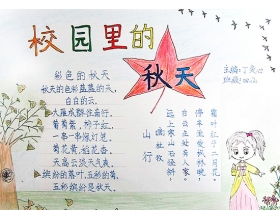 校园里的
秋天
主编:丁
班级:四
彩色的秋天
秋天的色彩蓝蓝的天,
白白的云,
大雁成群往南行。
葡萄紫,柿子红,
一串一串
菊花黄,稻花香,
天高云淡天气爽,
缤纷的落叶,五彩的菊,
五彩缤纷是秋天。
山行
杜牧
远上寒山石径斜,
白云生处有人家。
停车坐爱枫林晚,
霜叶红于二月花。